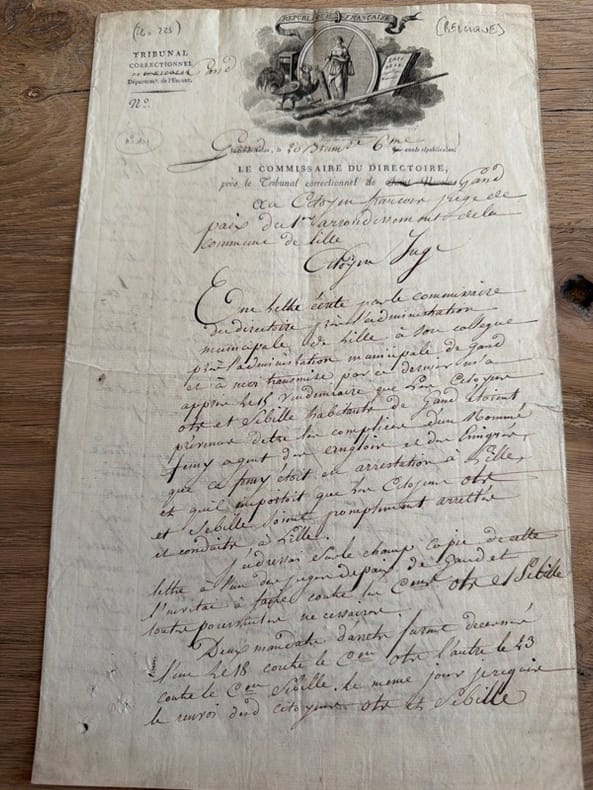 (Lo. 725)
(BELGIQUE)
RÉPUBLIQUE FRANÇAISE
TRIBUNAL
CORRECTIONNEL
Gand
Départem.t de l'Escaut.
N.º
Gand, le 26 Brum.re 6.me année républicaine.
LE COMMISSAIRE DU DIRECTOIRE,
près le Tribunal correctionnel de Gand
au Citoyen francois juge de
paix du 1er arrondissement de la
commune de Lille
Citoyen Juge
Une lettre écrite par le commissaire
du directoire près l'administration
municipale de Lille à son collegue
près l'administration municipale de Gand
et à moi transmise par ce dernier m'a
appris le 15 Vendemiaire que les Citoyens
otte et Sebille habitants de Gand etoient
prévenus d'etre les complices d'un Nommé
agent des anglois et des Emigrés,
que ce étoit en arrestation à Lille,
et qu'il importoit que les Citoyens otte
et Sebille soient promptement arrettés
et conduits à Lille.
J'adressai sur le champ copie de cette
lettre à l'un des juges de paix de Gand et
l'invitai à faire contre les Cens otte et Sebille
toutes poursuites necessaires.
Deux mandats d'arrêts furent decernés
l'un le 18 contre le Cen otte l'autre le 23
contre le Cen Sebille. le meme jour je requis
le renvoi desd citoyens otte et Sebille